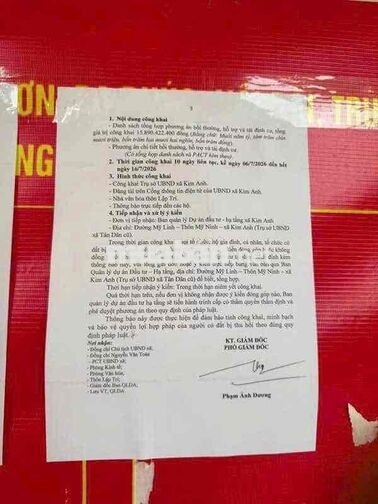 2
1. Nội dung công khai
- Danh sách tổng hợp phương án bồi thường, hỗ trợ và tái định cư, tổng
giá trị công khai 15.890.422.400 đồng (Bằng chữ: Mười năm tỷ, tám trăm chín
mươi triệu, bốn trăm hai mươi hai nghìn, bốn trăm đồng).
- Phương án chi tiết bồi thường, hỗ trợ và tái định cư.
(Có tổng hợp danh sách và PACT kèm theo)
2. Thời gian công khai 10 ngày liên tục, kể ngày 06/7/2026 đến hết
ngày 16/7/2026
3. Hình thức công khai
- Công khai Trụ sở UBND xã Kim Anh.
- Đăng tải trên Cổng thông tin điện tử của UBND xã Kim Anh.
- Nhà văn hóa thôn Lập Trí.
- Thông báo trực tiếp đến các hộ.
4. Tiếp nhận và xử lý ý kiến
- Đơn vị tiếp nhận: Ban quản lý Dự án đầu tư – hạ tầng xã Kim Anh
- Địa chỉ: Đường Mỹ Linh – Thôn Mỹ Ninh – xã Kim Anh (Trụ sở UBND
xã Tân Dân cũ).
Trong thời gian công khai, nếu tổ chức, hộ gia đình, cá nhân, tổ chức có
đất bị đồng
thông báo này, vui lòng gửi đơn hoặc ý kiến trực tiếp bằng văn bản qua Ban
Quản lý dự án Đầu tư – Hạ tầng, địa chỉ: Đường Mỹ Linh – Thôn Mỹ Ninh – xã
Kim Anh (Trụ sở UBND xã Tân Dân cũ) để biết, tổng hợp.
Thời hạn tiếp nhận ý kiến: Trong thời hạn niêm yết công khai.
Quá thời hạn trên, nếu đơn vị không nhận được ý kiến đóng góp nào, Ban
quản lý dự án đầu tư hạ tầng sẽ tiến hành trình cấp có thẩm quyền thẩm định và
phê duyệt phương án theo quy định của pháp luật.
Thông báo này được thực hiện để đảm bảo tính công khai, minh bạch và
bảo vệ quyền lợi hợp pháp của người có đất bị thu hồi theo đúng quy
định pháp luật./.
Nơi nhận:
- Đồng chí Chủ tịch UBND xã;
- Đồng chí Nguyễn Văn Toàn
- PCT UBND xã;
- Phòng Kinh tế;
- Phòng Văn hóa;
- Thôn Lập Trí;
- Giám đốc Ban QLDA;
- Lưu VT, QLDA.
KT. GIÁM ĐỐC
PHÓ GIÁM ĐỐC
Phạm Ánh Dương